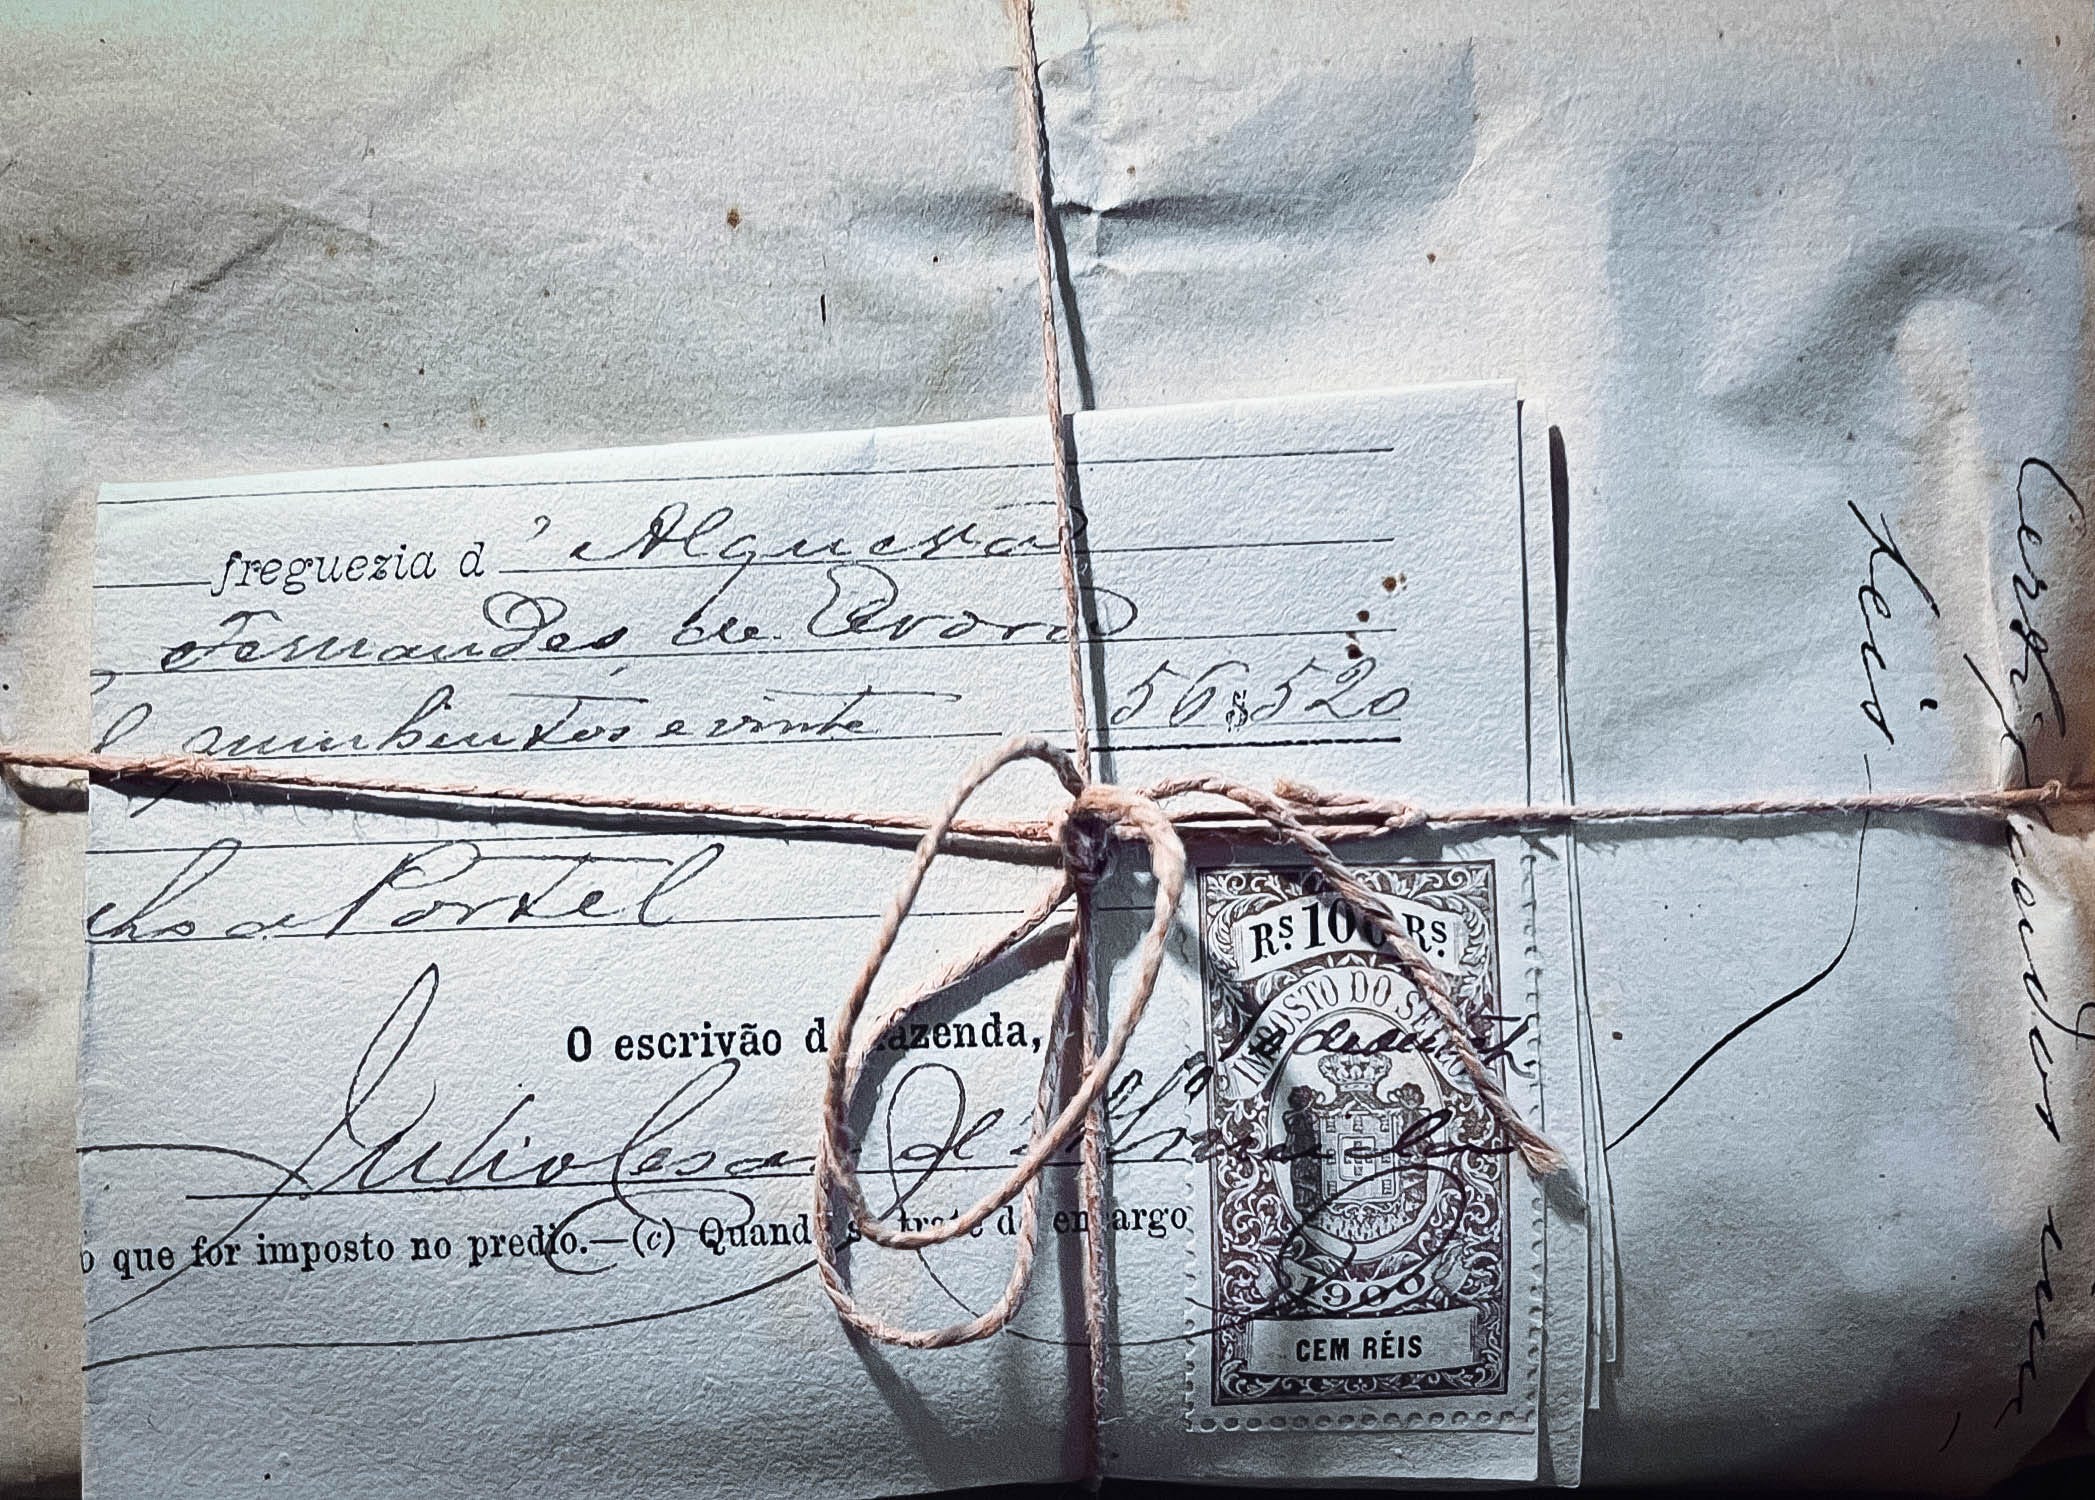 freguezia d'Alqueva
Fernandes de Evora
quinhentos e vinte 56$520
lho de Portel
O escrivão d fazenda,
Julio Cesar d'
o que for imposto no predio.—(c) Quando se trate de encargo
Rs. 100 Rs.
IMPOSTO DO SELLO
1900
CEM RÉIS
Reis